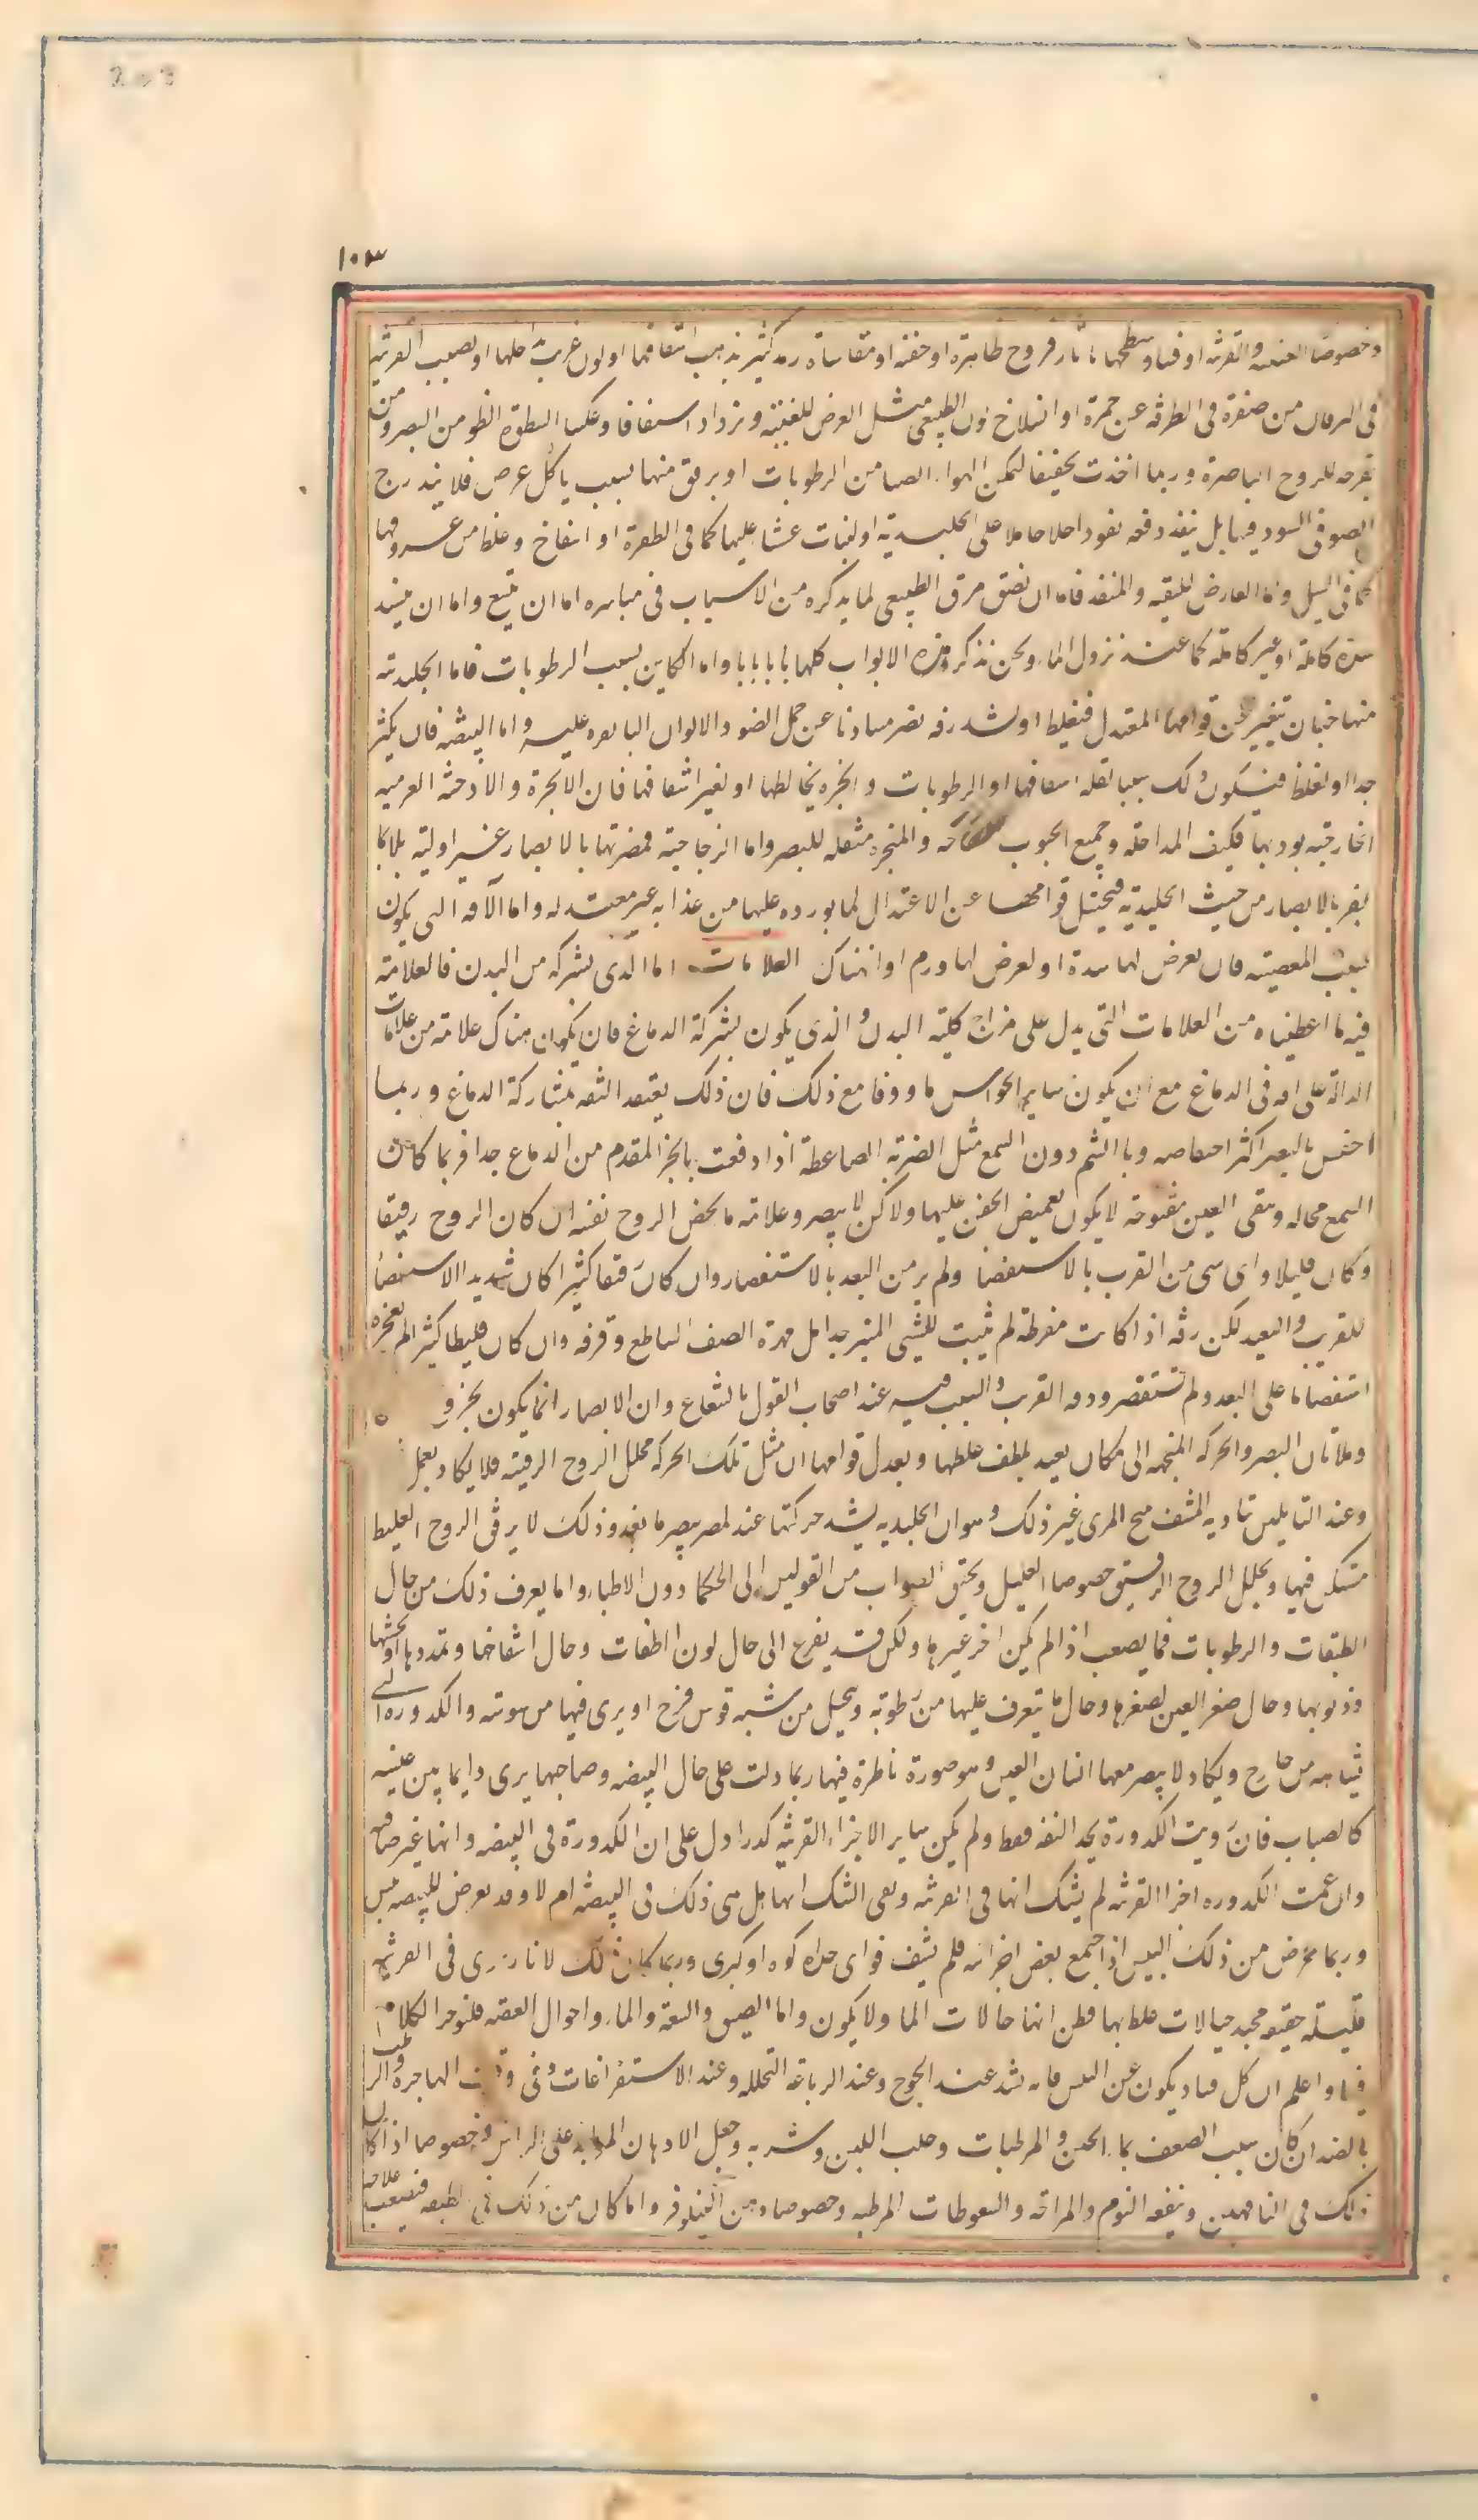 203
١٠٣
وخصوصا العنبيه والقرنيه او فساد سطحها باثار قروح ظاهرة او خفيه او مقاساة رمد كثير يذهب اشفافها او لون غريب داخلها او يصيب القرنيه
فى اليرقان من صفرة فى الطرفه عن حمرة او انسلاخ لون الطبيعى مثل العرض للعنبيه ويزداد اشفافا وتمكينا لسطوة الضو من البصر ومن
تفرقه للروح الباصرة وربما اخذت تجفيفا لتمكن الهوا. الضيا من الرطوبات او يرقق منها بسبب تاكل عرض فلا يتدرج
الضو فى النفود فيها بل ينفذ دفعه نفودا حاملا على الجليدية او لنبات غشا عليها كما فى الظفرة او انتفاخ وغلظ من عروقها
كما فى السبل واما العارض للثقبه والمنفد فاما ان تضيق فوق الطبيعى لما يذكره من الاسباب فى بابه اما ان يتسع واما ان ينسد
سدة كاملة او غير كاملة كما عند نزول الما. ونحن نذكر هذه الابواب كلها بابا بابا واما الكاين بسبب الرطوبات فاما الجليديه
منها فبان تتغير عن قوامها المعتدل فيغلظ او يشد دفعه عن حمل الضو والالوان الباهره عليه واما البيضه فان يكثر
جدا او تغلظ فيكون ذلك سببا لقله اشفافها او الرطوبات وابخره يخالطها او تغير اشفافها فان الابخرة والادخنه الغريبه
الخارجيه يوديها فكيف الداخله وجميع الحبوب النفاخه والمبخره مثقله للبصر واما الزجاجية فمضرتها بالابصار غير اولية بل انما
يضر بالابصار من حيث الجليدية فيحيل قوامها عن الاعتدال لما يورده عليها من غذا به غير معتدله واما الآفه التى يكون
بسبب العصبيه فان يعرض لها سدة او يعرض لها ورم او انهتاك العلامات اما الذى بشركه من البدن فالعلامه
فيه ما اعطيناه من العلامات التى يدل على مزاج كلية البدن والذى يكون بشركة الدماغ فان يكون هناك علامة من علامات
الدالة على افه فى الدماغ مع ان يكون ساير الحواس ماووفا مع ذلك فان ذلك يعتقد الثقه بمشاركة الدماغ وربما
اختص بالبصر اكثر اختصاصه وبالشم دون السمع مثل الضربه الضاغطة اذا دفعت بالجز المقدم من الدماغ جدا فربما كان
السمع بحاله وبقى العين مفتوحه لا يكون تغميض الجفن عليها ولا كن لا يبصر وعلامته ما يخص الروح نفسه ان كان الروح رقيقا
وكان قليلا راى شى من القرب بالاستقصا ولم ير من البعد بالاستقصا وان كان رقيقا كثيرا كان شديد الاستقصا
للقريب والبعيد لكن رقته اذا كانت مفرطة لم يثبت للشئ المنير جدا بل بهره الضو الساطع وفرقه وان كان غليظا كثيرا لم يعجزه
استقصا ما على البعد ولم يستقصر ودوه القرب والسبب فيه عند اصحاب القول بالشعاع وان الابصار انما يكون بخروج
وملاقان البصر والحركه المتجهه الى مكان بعيد يلطف غلظها ويعدل قوامها ان مثل تلك الحركه تحلل الروح الرقيقه فلا يكاد يعمل
وعند القايلين بتاديه المشف شبح المرى غير ذلك وهو ان الجليديه يشد حركتها عند تبصر ما بعد وذلك لا يرقق الروح الغليظ
المستكن فيها ويحلل الروح الرقيق خصوصا القليل وتحقيق الصواب من القولين الى الحكما دون الاطباء واما يعرف ذلك من حال
الطبقات والرطوبات فما يصعب اذا لم يكن اخر غيرها ولكن قد يفزع الى حال لون الطبقات وحال انتفاخها وتمددها او تحشنها
وذبولها وحال صغر العين لصغرها وحال ما يترف عليها من رطوبة ويخيل من شبه قوس قزح او يرى فيها من يبوسه والكدورة التى
يشاهد من خارج ويكاد لا يبصر معها انسان العين وهو صورة ناظرة فيها ربما دلت على حال البيضه وصاحبها يرى دايما بين عينيه
كالضباب فان رويت الكدورة بحد الثقبه فقط ولم يكن ساير الاجزاء القرنية كدرا دل على ان الكدورة فى البيضه وانها غير صافيه
وان عمت الكدوره اجزا القرنيه لم يشك انها فى القرنيه وبقى الشك انها هل هى ذلك فى البيضه ام لا وقد يعرض للبيضه يبس
وربما عرض من ذلك اليبس ان اجتمع بعض اجزائه فلم يشف فراى حذاه كوه او كوى وربما كان ذلك لاثار ترى فى القرنيه
قليلة خفيه مجيد خيالات غلط بها فظن انها خالات الما ولا يكون واما الضيق والسعه والماء. واحوال العصبه فلنوخر الكلام
فيها واعلم ان كل فساد يكون عن اليبس فانه يشد عند الجوع وعند الرياضه المحلله وعند الاستفراغات وفى وقت الهاجره والرطب
بالضد ان كان سبب الضعف بماء الجبن والمرطبات وحلب اللبن وشربه وجعل الادهان المرطبه على الراس وخصوصا اذا كان
ذلك فى الناقهين وينفعه النوم والراحه والسعوطات المرطبه وخصوصا دهن النيلوفر واما كان من ذلك فى الطبقه فيصعب علاجه